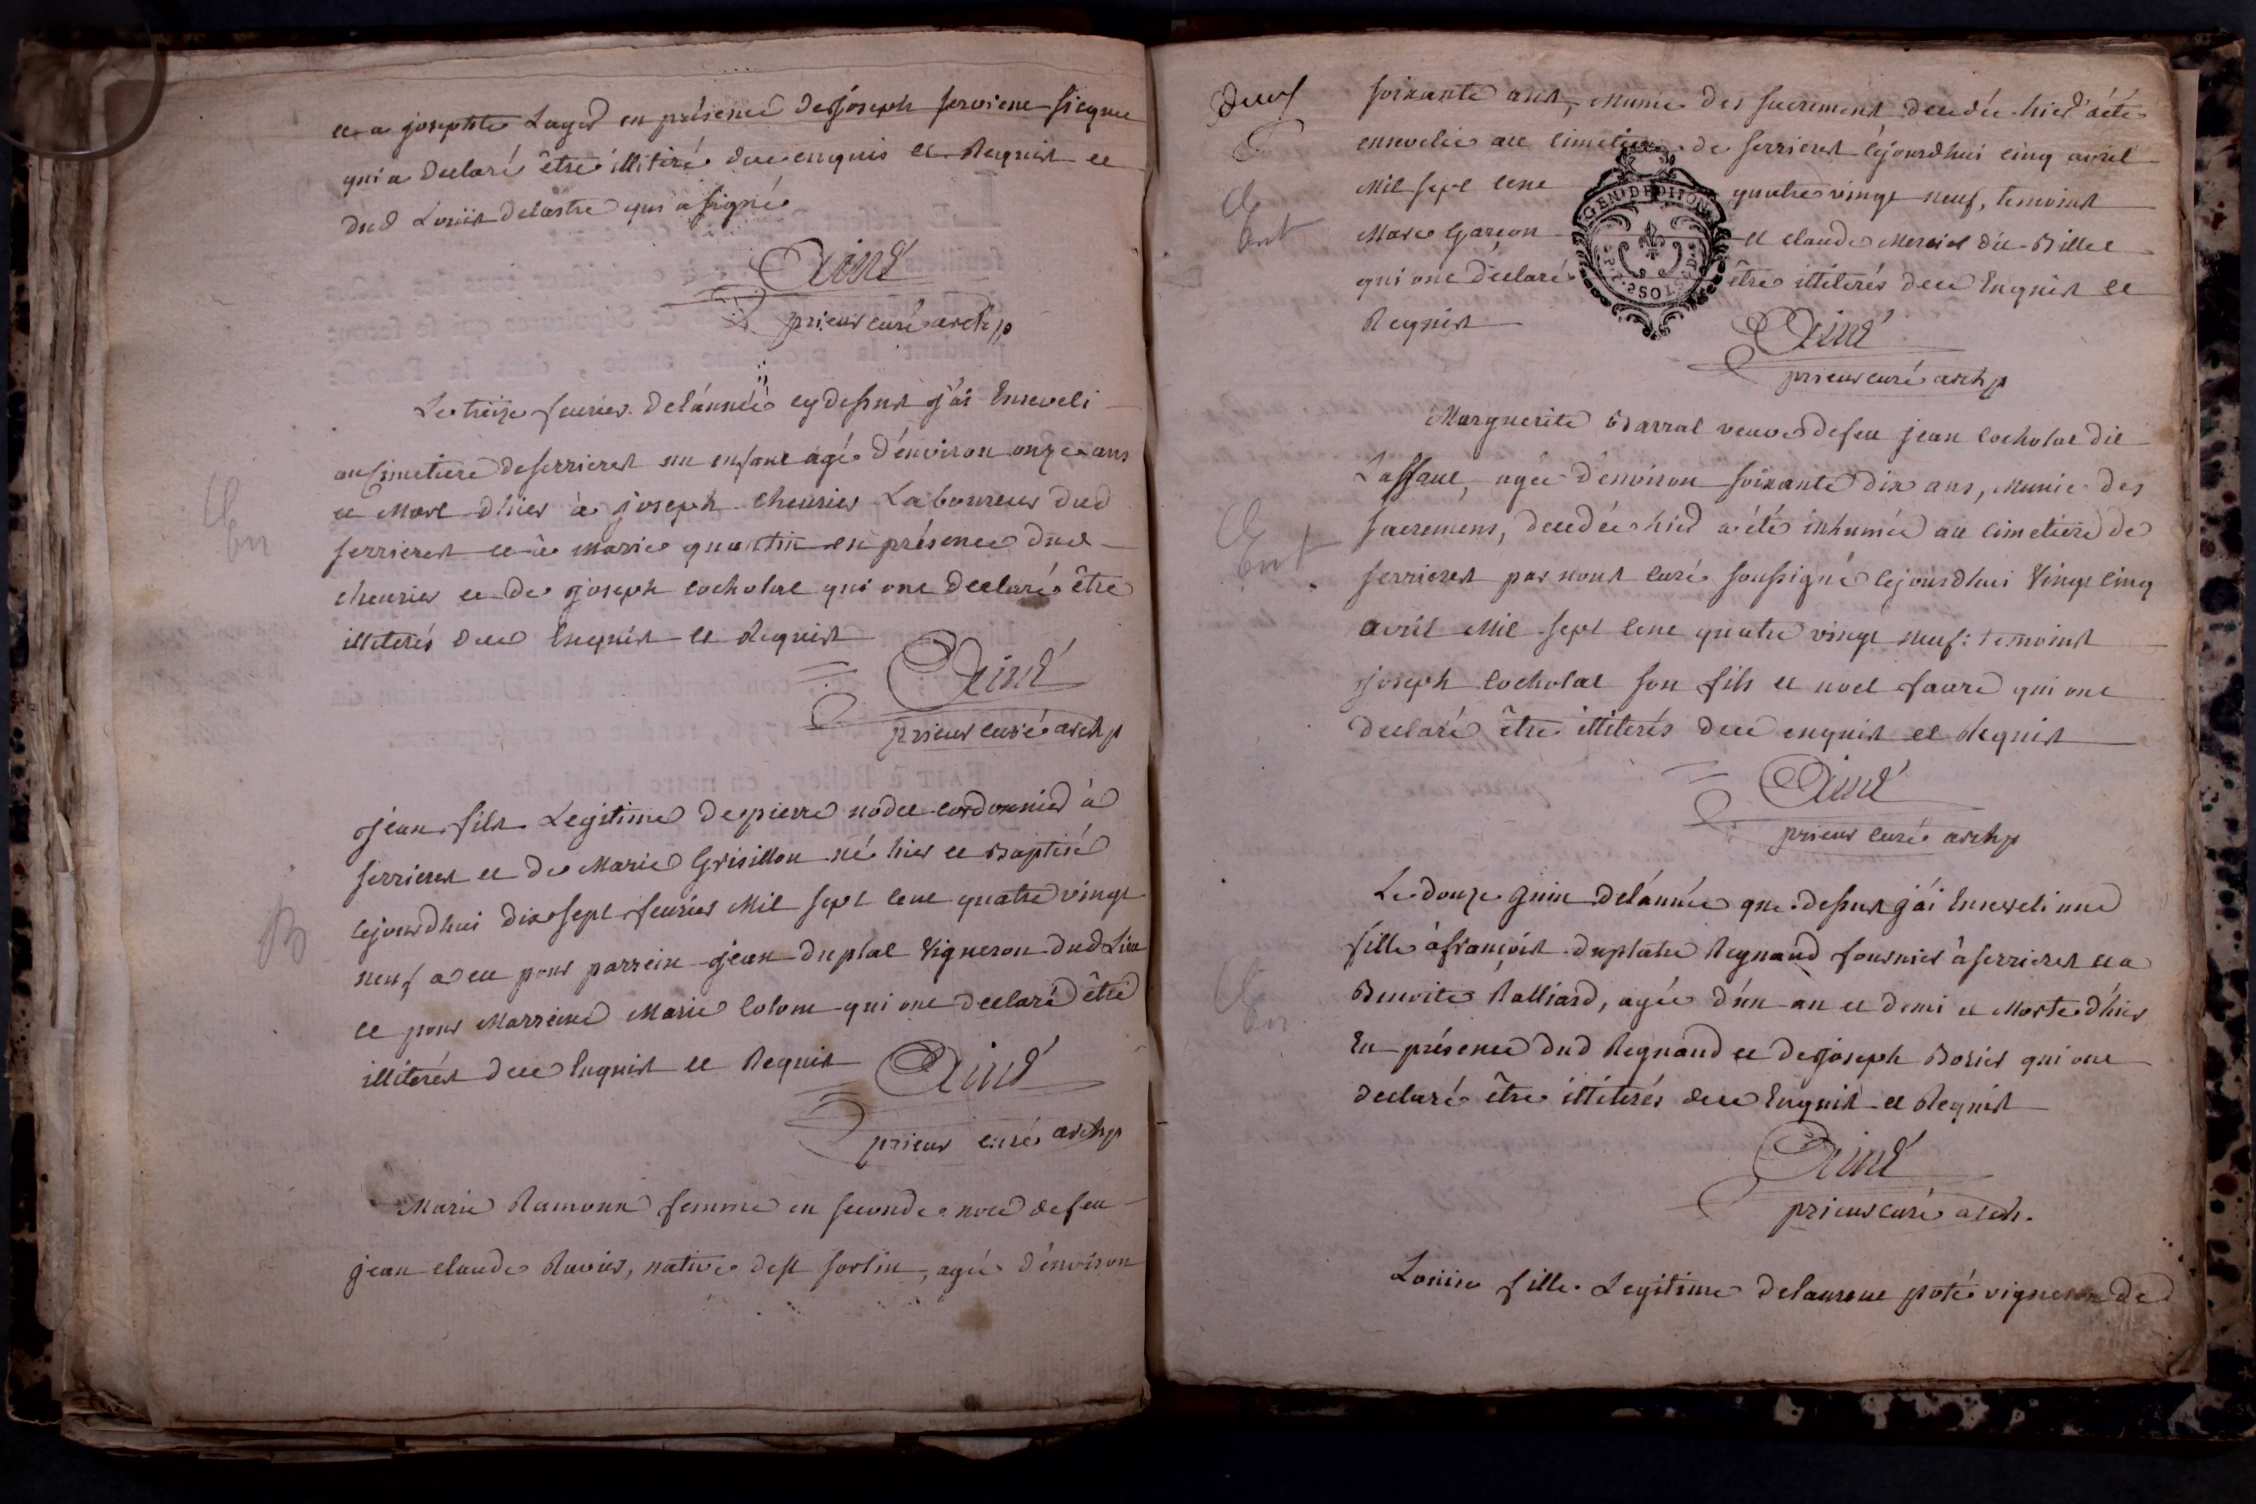 et a josephte Lager en présence de joseph serviene sieque
qui a declaré être illitiré due enquis et Requist et
dud Louis delastre qui a signé
Ainé
prieur curé archp
Le treize fevrier de l'année cy dessus j'ai Enseveli
au Cimetiere de ferrieres un enfant agé d'environ onze ans
et Mort d'hier à joseph cheurier Laboureur dud
ferrieres et à marie quantin en présence dud
cheurier et de joseph cochotat qui ont declaré être
illiterés due Enquist et Requist
Ainé
prieur curé archp
En
jean fils Legitime de pierre nodet cordonnier à
ferrieres et de Marie Grisillon né hier et Baptisé
cejourdhui dix sept fevrier Mil sept cent quatre vingt
neuf a eu pour parrein jean duplat Vigneron dud Lieu
et pour Marreine Marie Colom qui ont declaré être
illiterés due Enquist et Requist
Ainé
prieur curé archp
B
Marie Ramoux femme en seconde noce de feu
jean claude Ravier, native de st sorlin, agée d'environ
Deux
soixante ans, munie des sacrements decedée hier a été
ensevelie au cimetiere de ferrieres cejourdhui cinq avril
Mil sept cent quatre vingt neuf, temoins
Marc Garçon et claude Mercier dit Billet
qui ont declaré être illiterés due Enquist et
Requist
GEN. DE DIJON
2 SOLS
Ainé
prieur curé archp
Ent
Marguerite Barral veuve de feu jean cochotat dit
Laffant, agée d'environ soixante dix ans, munie des
sacremens, decedée hier a été inhumée au cimetiere de
ferrieres par nous curé soussigné cejourdhui Vingt cinq
avril Mil sept cent quatre vingt neuf: temoins
joseph cochotat son fils et noel favre qui ont
declaré être illiterés due enquist et Requist
Ainé
prieur curé archp
Ent
Le douze juin de l'année que dessus j'ai Enseveli une
fille à françois duplatre Regnaud fournier à ferrieres et a
Benoite Ralliard, agée d'un an et demi et Morte d'hier
En présence dud Regnaud et de joseph Borier qui ont
declaré être illiterés due Enquist et Requist
Ainé
prieur curé arch.
En
Louise fille Legitime de laurent poté vigneron de